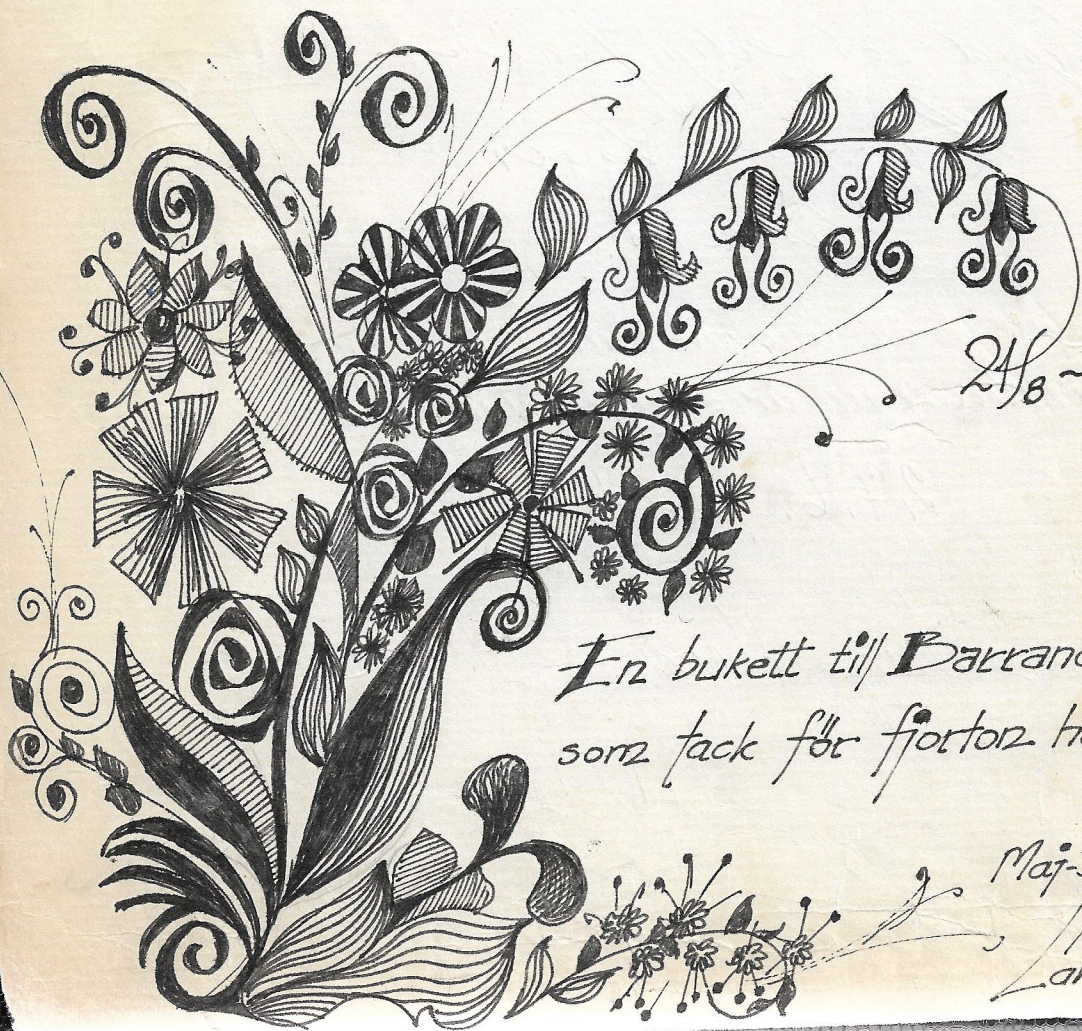 24/8 ~
En bukett till Barrand
som tack för fjorton h
Maj-